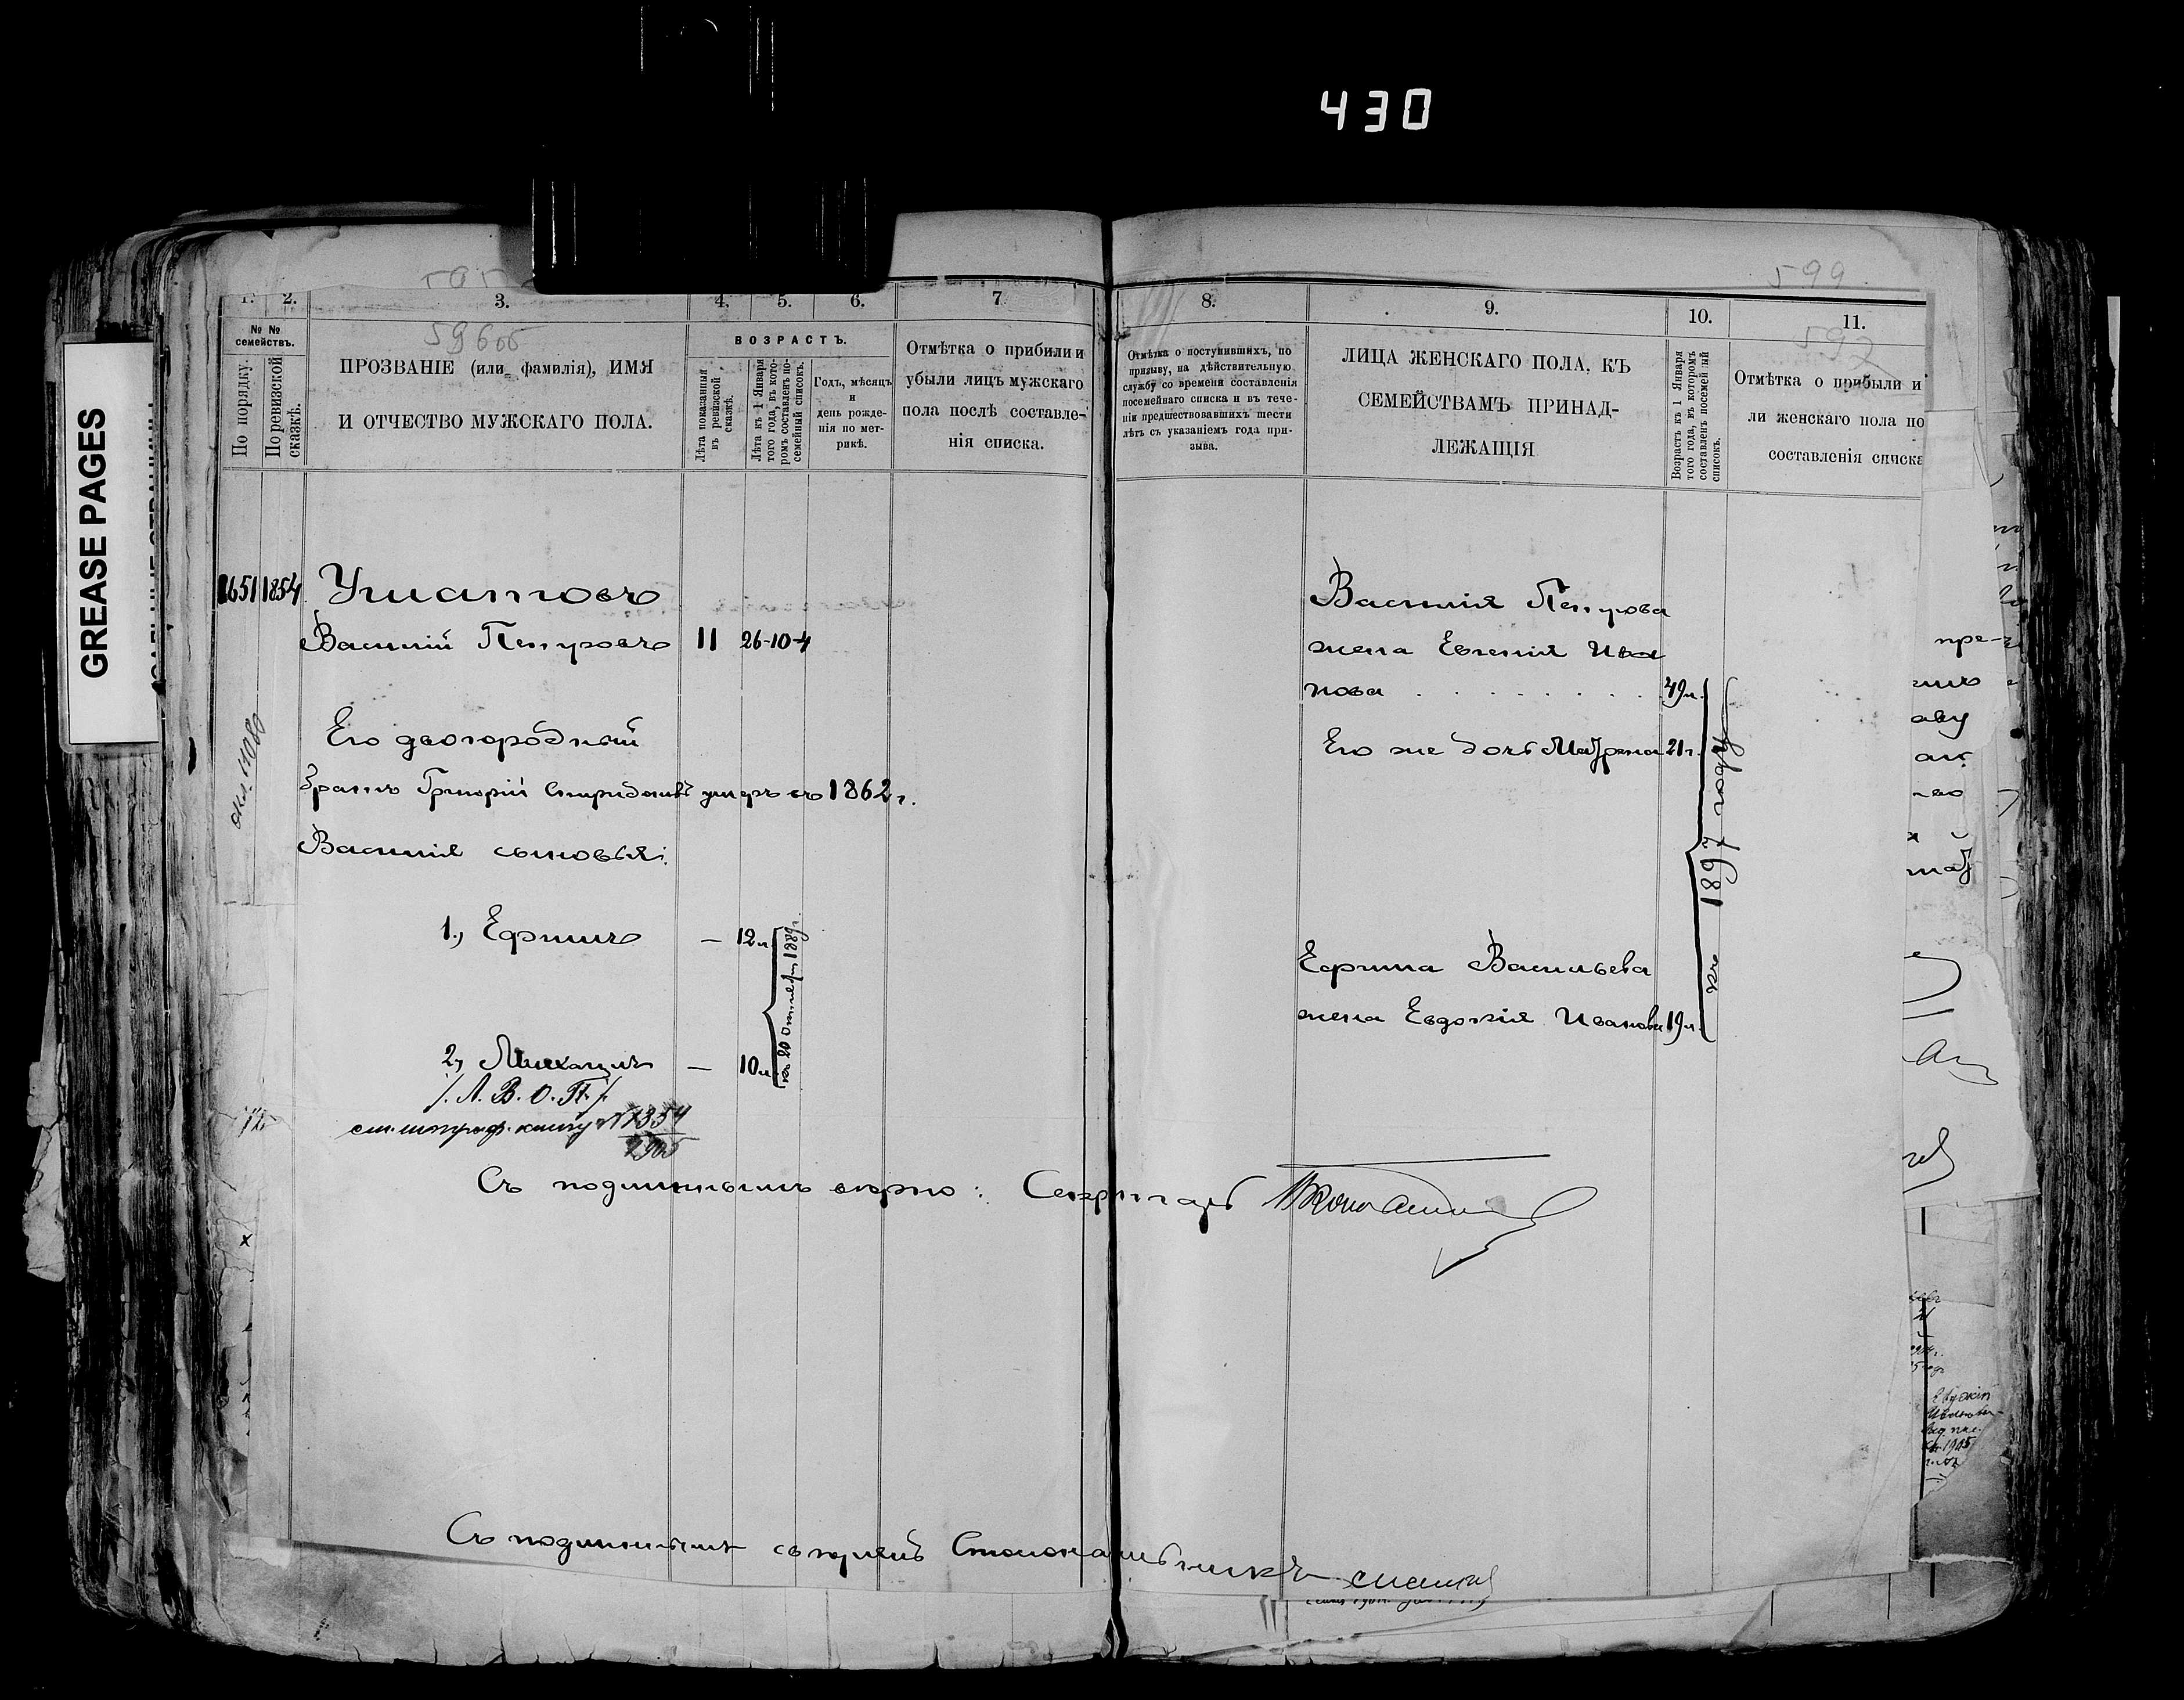 430
GREASE PAGES
599
596об
597
1. 2. 3. 4. 5. 6. 7
№ № семействъ.
По порядку.
По ревизской сказкѣ.
ПРОЗВАНІЕ (или фамилія), ИМЯ
И ОТЧЕСТВО МУЖСКАГО ПОЛА.
ВОЗРАСТЪ.
Лѣта показанныя въ ревизской сказкѣ.
Лѣта къ 1 Января того года, въ которомъ составленъ посемейный списокъ.
Годъ, мѣсяцъ
и
день рожде-
нія по мет-
рикѣ.
Отмѣтка о прибыли и
убыли лицъ мужскаго
пола послѣ составле-
нія списка.
8. 9. 10. 11.
Отмѣтка о поступившихъ, по
призыву, на дѣйствительную
службу со времени составленія
посемейнаго списка и въ тече-
ніи предшествовавшихъ шести
лѣтъ съ указаніемъ года при-
зыва.
ЛИЦА ЖЕНСКАГО ПОЛА, КЪ
СЕМЕЙСТВАМЪ ПРИНАД-
ЛЕЖАЩІЯ
Возрастъ къ 1 Января
того года, въ которомъ
составленъ посемейный
списокъ.
Отмѣтка о прибыли и
ли женскаго пола по
составленія списка
1651 1854 Ушатовъ
Василій Петровъ 11 26-10-4
Его двоюродный
братъ Григорій Спиридоновъ умеръ въ 1862 г.
Василія сыновья:
1, Ефимъ — 12 л.
2, Михаилъ — 10 л.
къ 20 Октября 1889 г.
/. Л. В. О. П. /.
см. штраф. книгу № 1354
Василія Петрова
жена Евгенія Ива
нова . . . . . . . . 49 л.
Его же дочь Матрена 21 г.
Ефима Васильева
жена Евдокія Иванова 19 л.
къ 1897 году
Съ подлиннымъ вѣрно: Секретарь
Съ подлиннымъ свѣрялъ Столоначальникъ